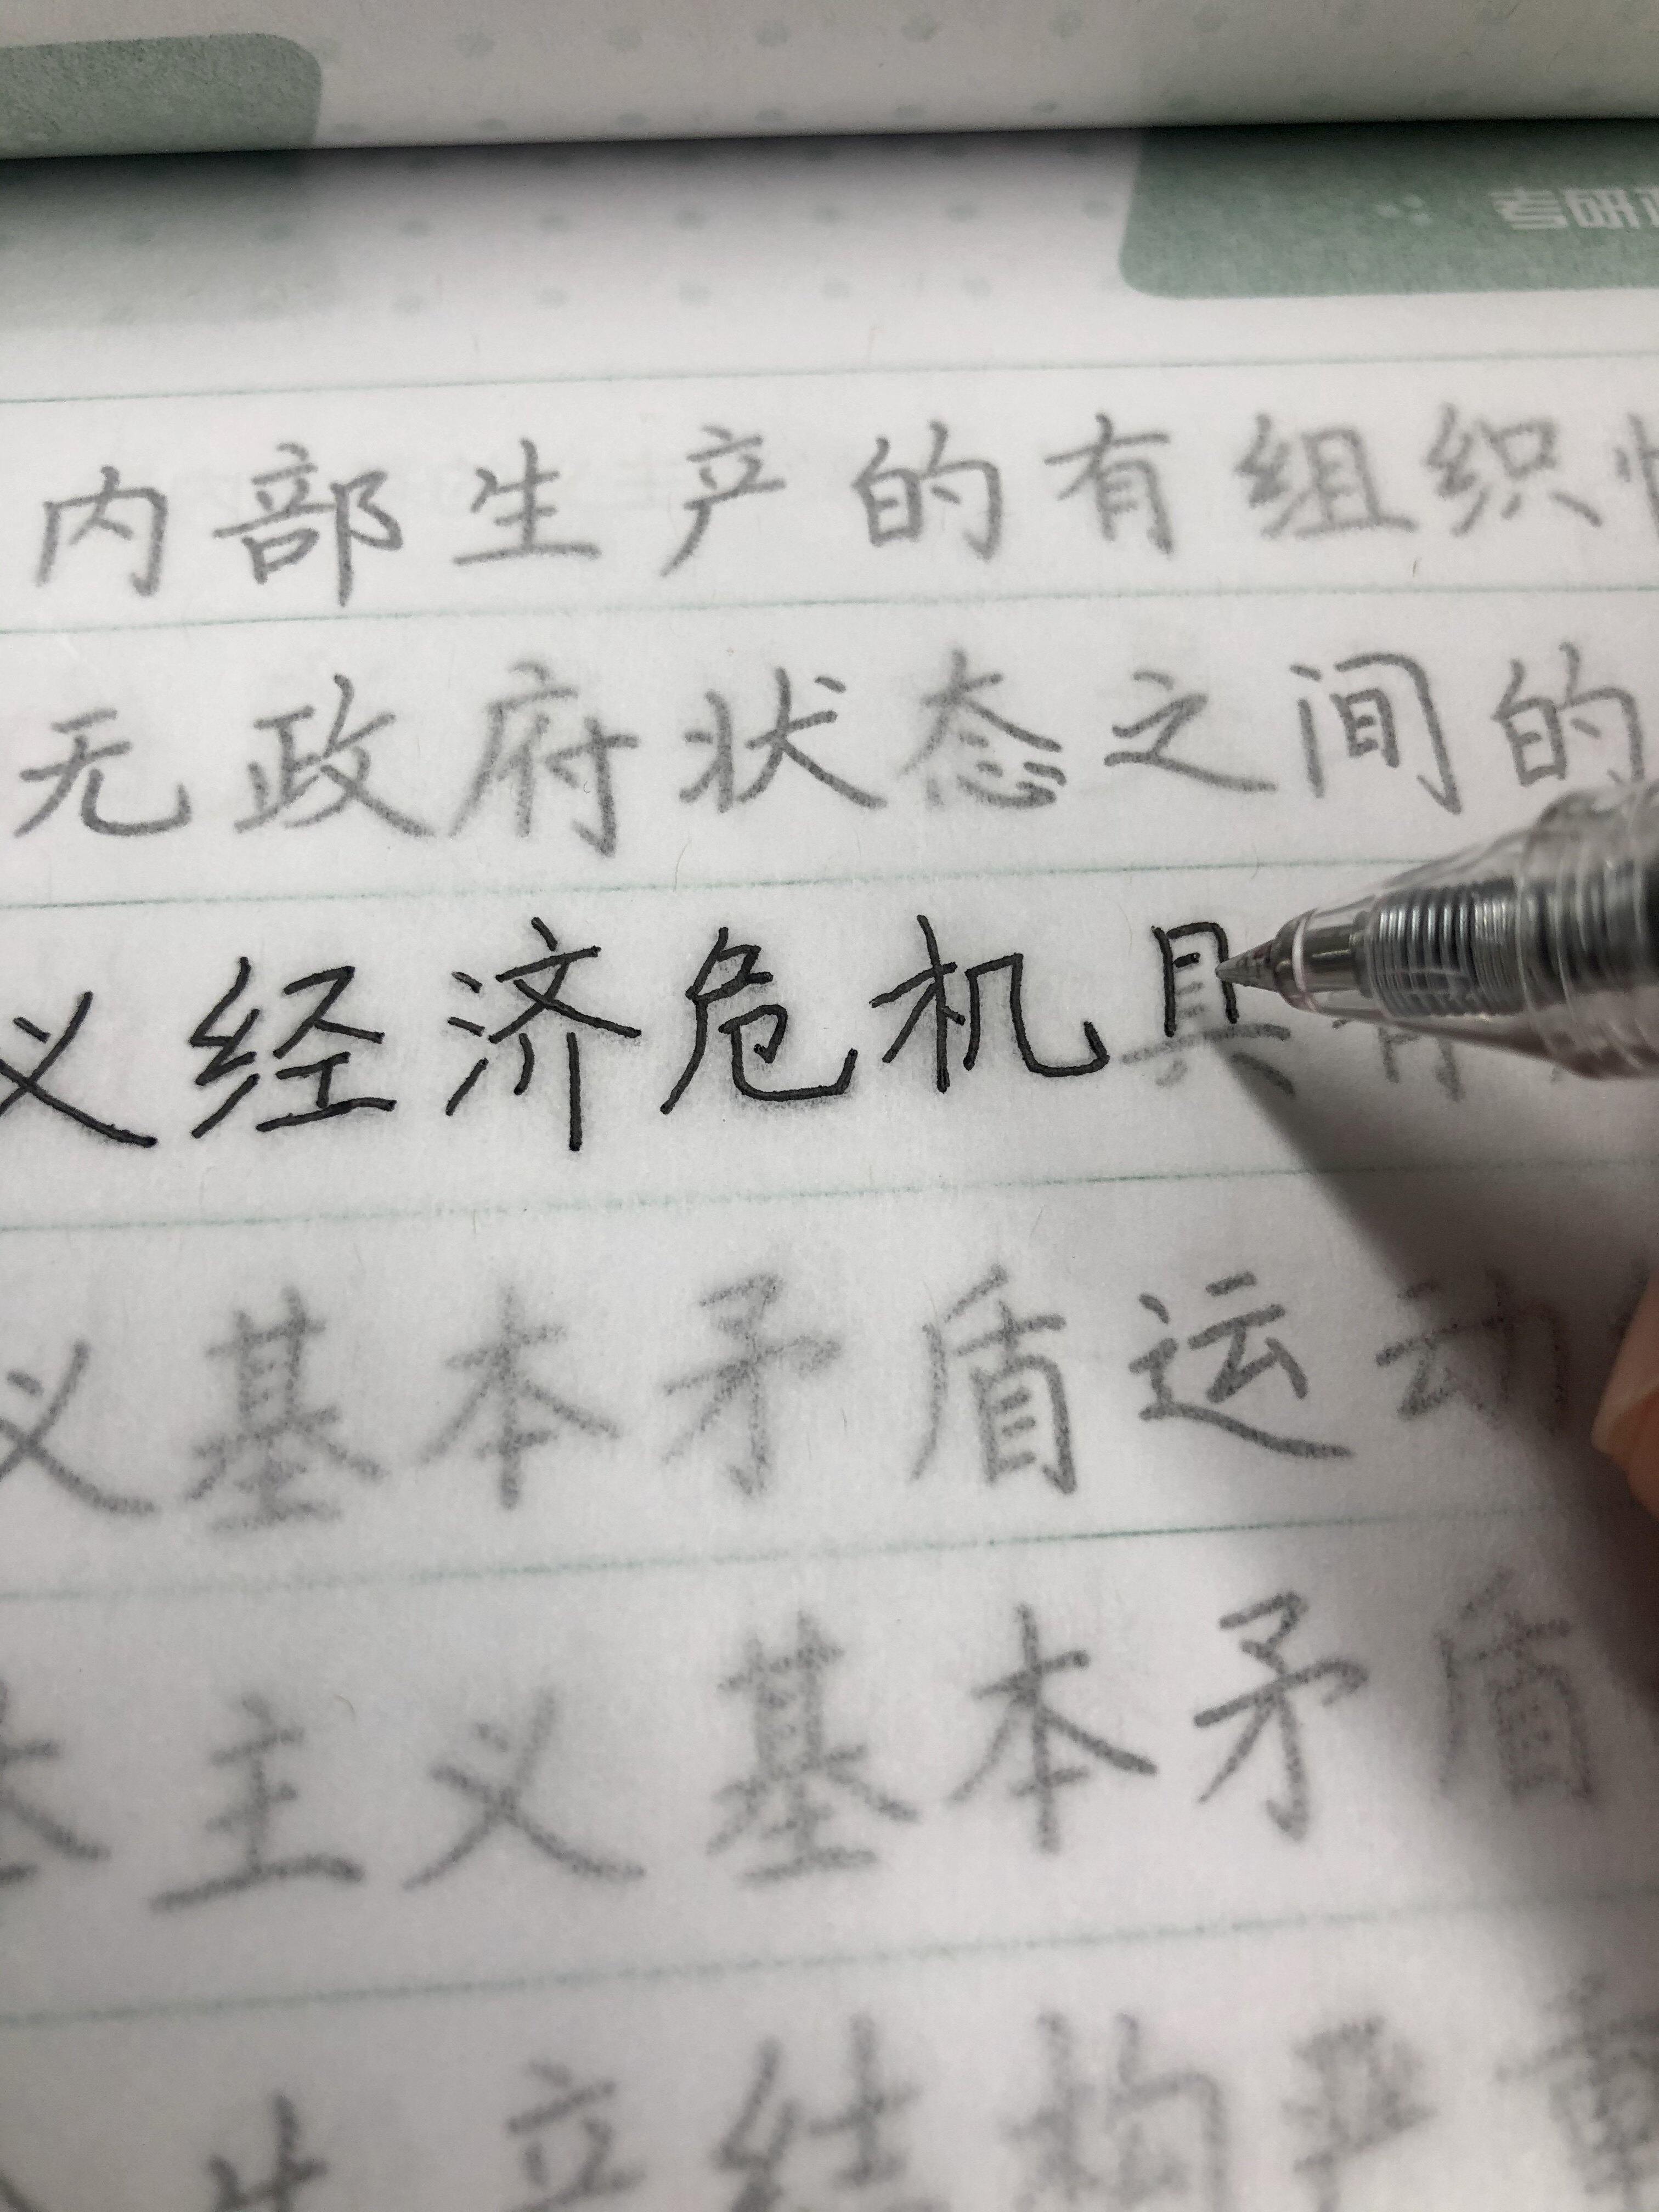 考研
内部生产的有组织
无政府状态之间的
义经济危机具有
义基本矛盾运动
本主义基本矛盾
生产结构严重